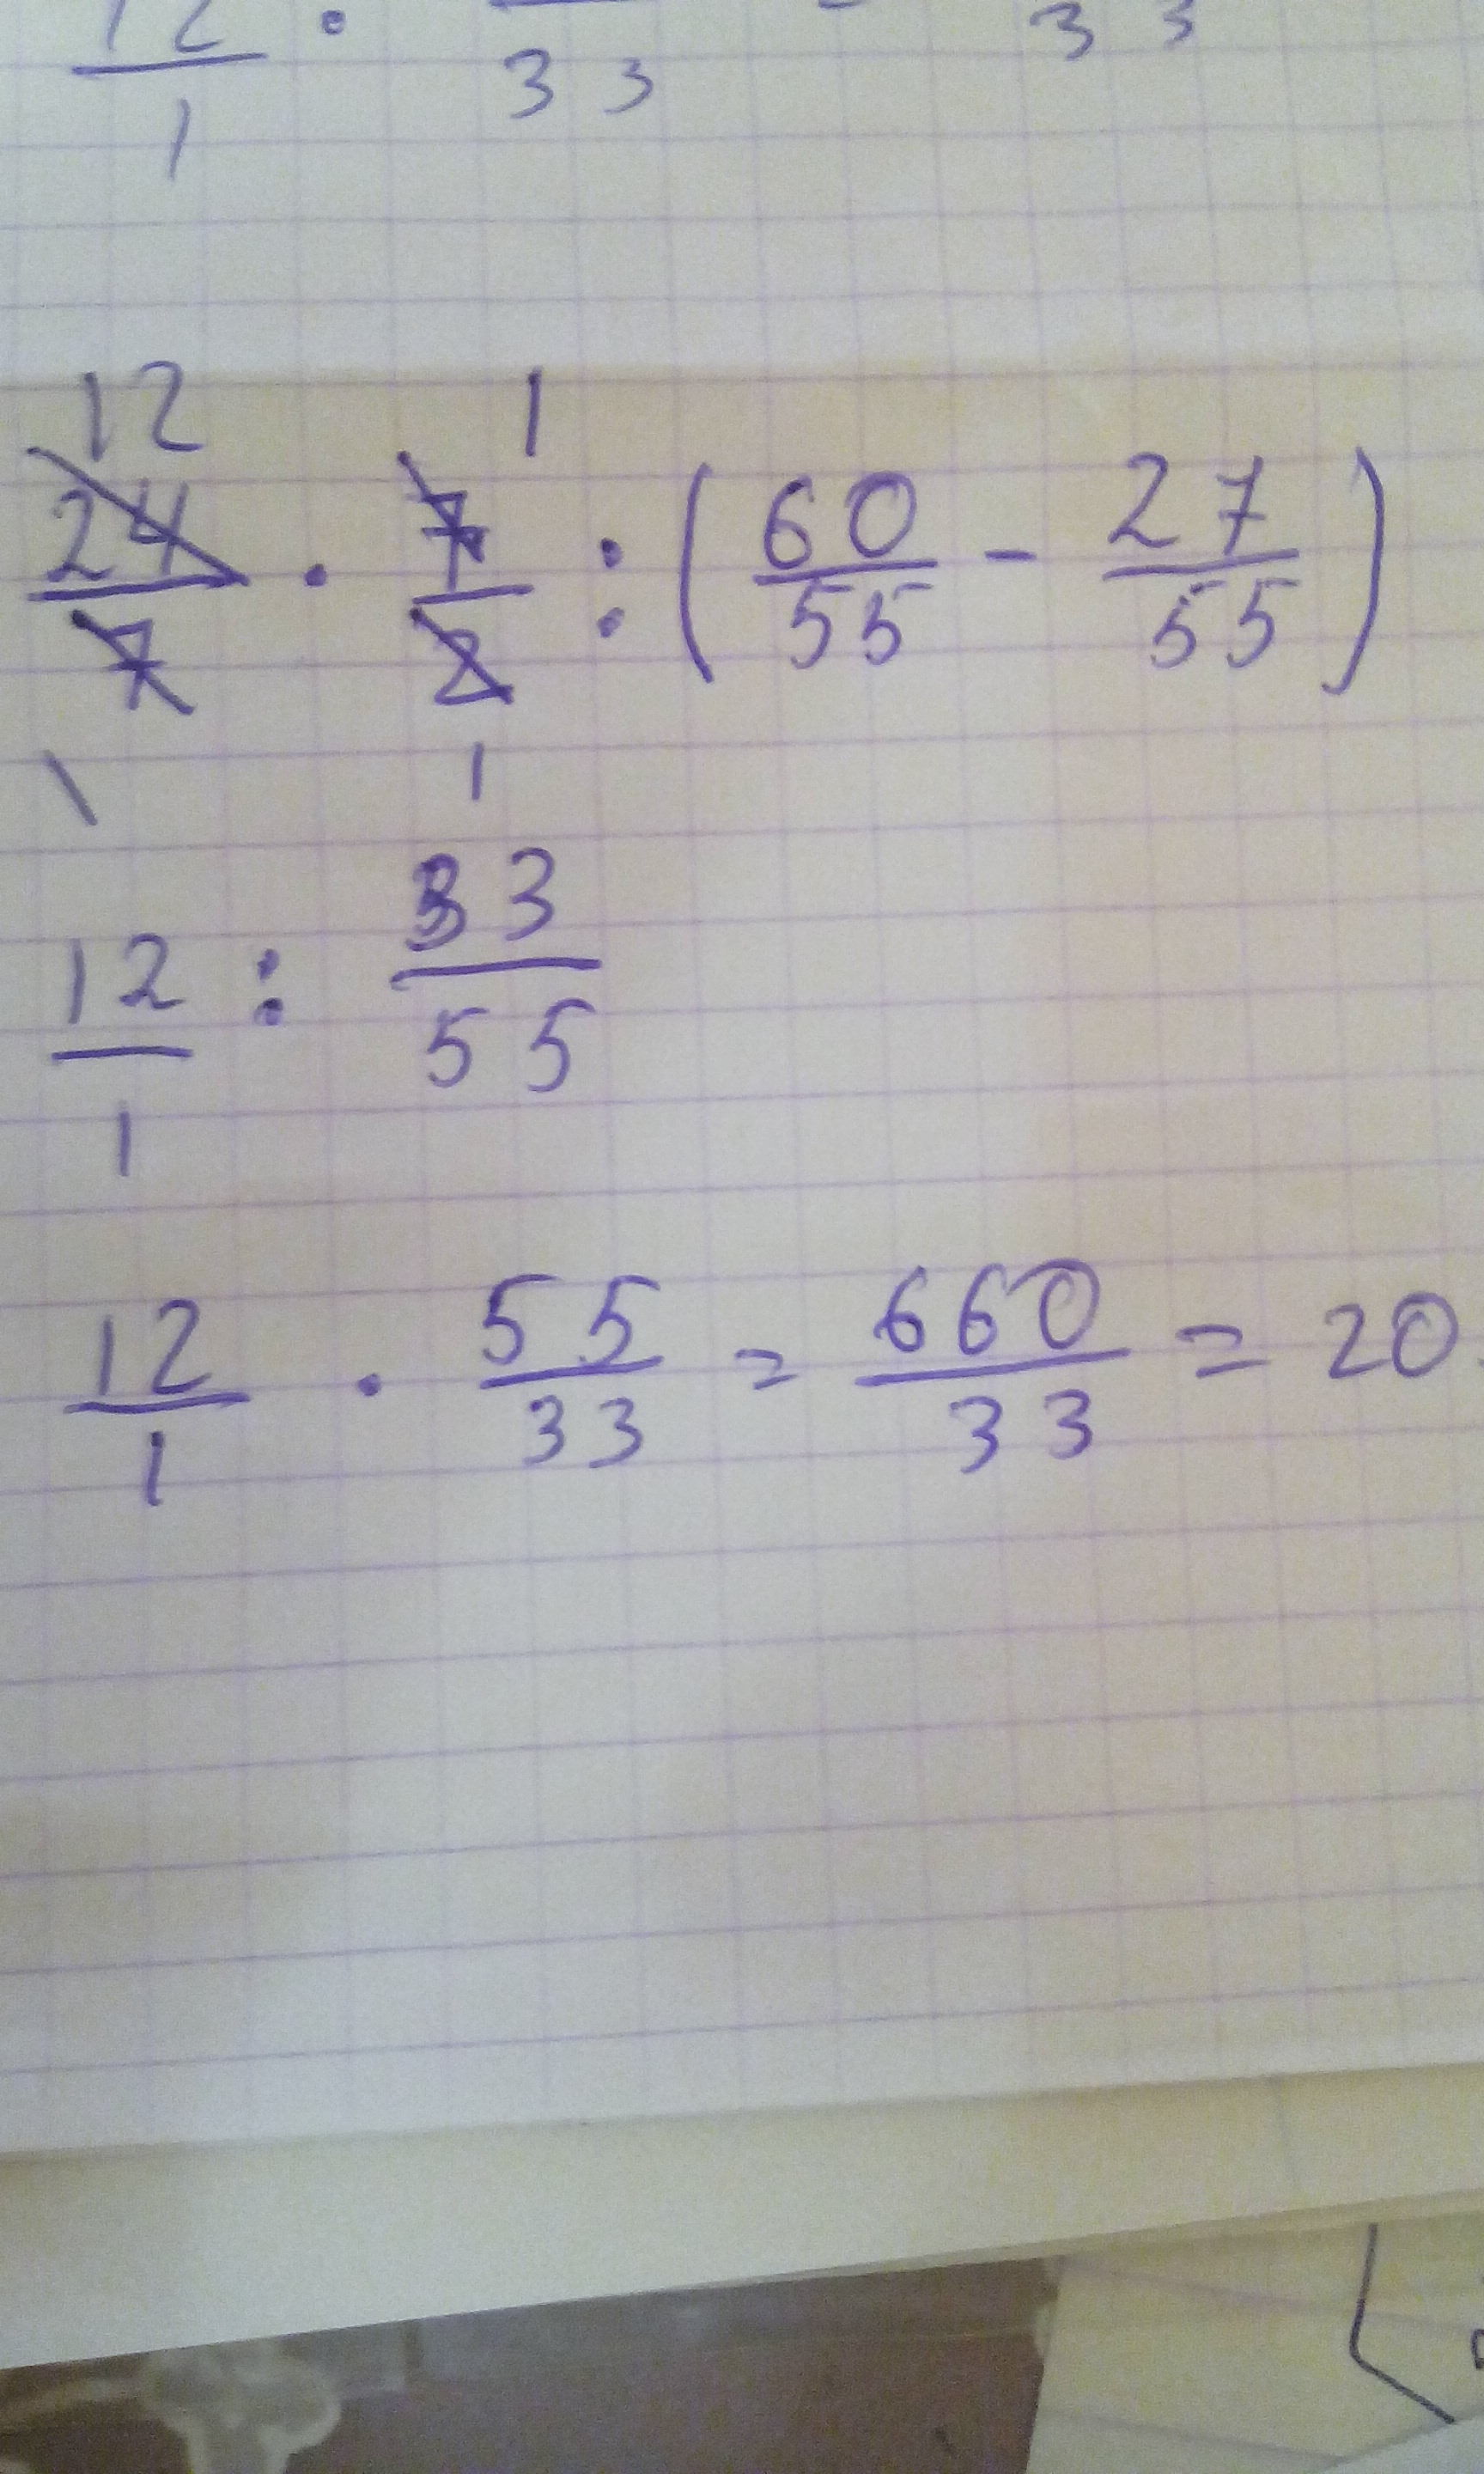 12/1 · /33 33
12 1
24/7 · 7/2 : (60/55 - 27/55)
1 1
12/1 : 33/55
12/1 · 55/33 = 660/33 = 20